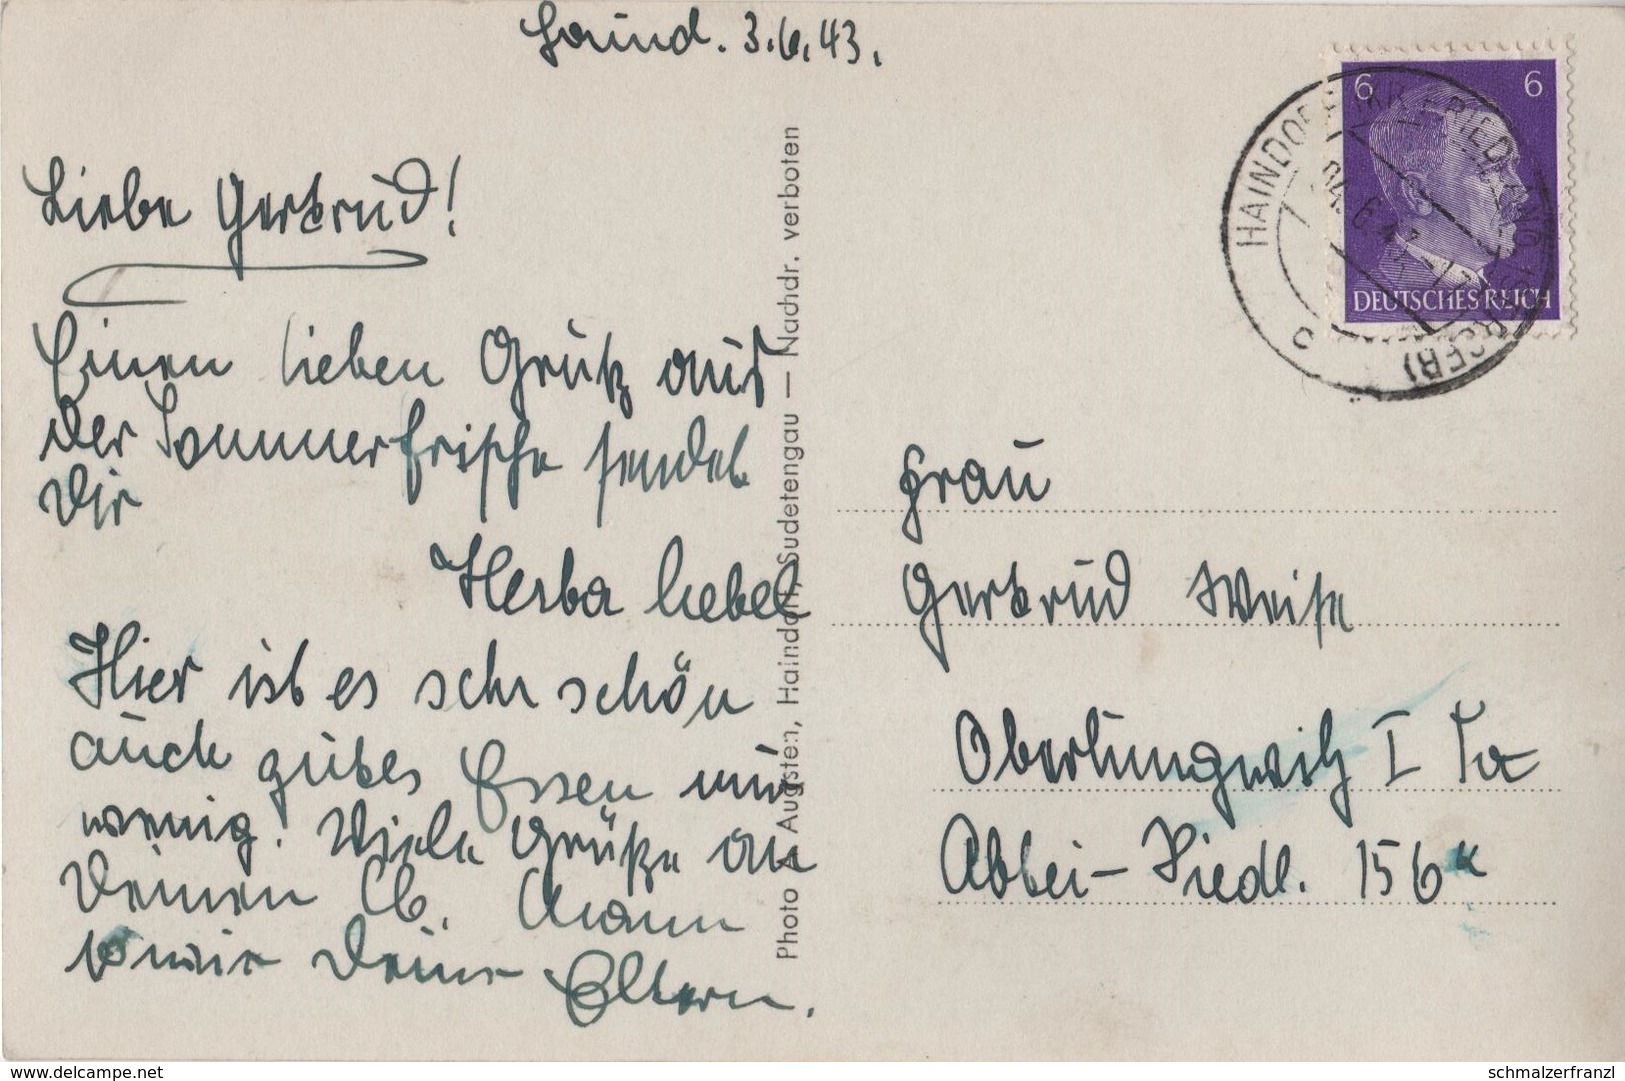 Haind. 3.6.43.
Liebe Gertrud!
Einen lieben Gruß aus
der Sommerfrische sendet
Dir
Herta Liebelt
Hier ist es sehr schön
auch gutes Essen nur
wenig! Viele Grüße an
Deinen lb. Mann
sowie Deine Eltern.
Photo Augsten, Haindorf, Sudetengau — Nachdr. verboten
6 6
DEUTSCHES REICH
HAINDORF FRIEDLAND (ISERGEB)
c
Frau
Gertrud Weise
Oberlungwitz I Sa
Abtei-Siedl. 156
www.delcampe.net
schmalzerfranzl